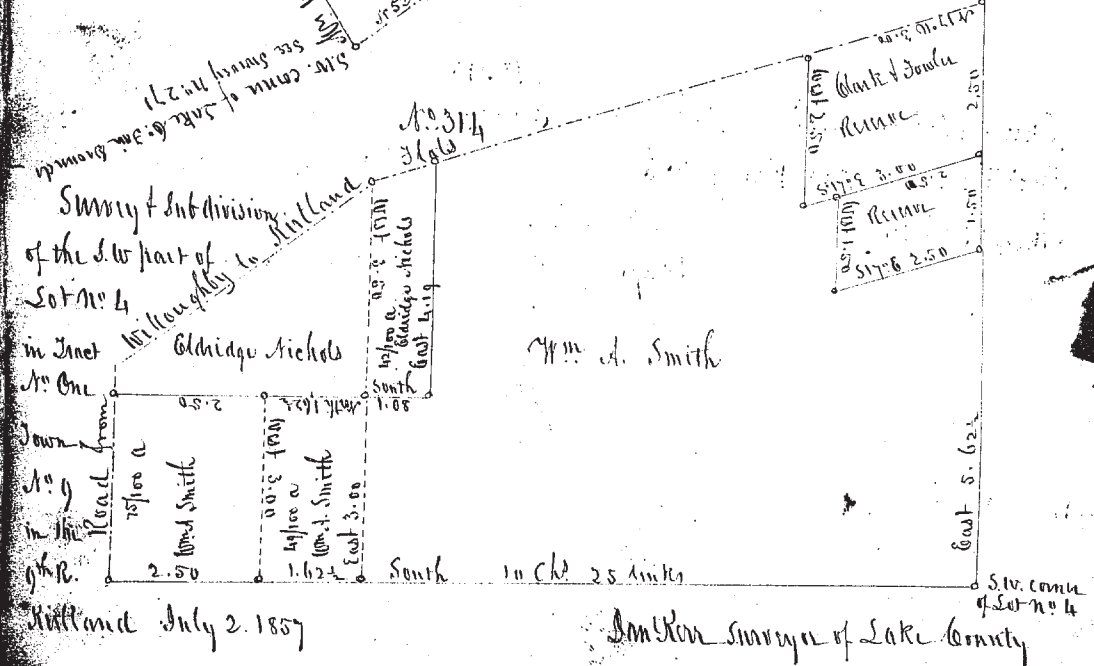 S.W. corner of Lake Co. Fair Grounds
See Survey No. 271
No. 314
Survey & Subdivision
of the S.W part of
Lot No. 4
in Tract
No. One
Town
No. 9
in the
9th R.
Road from
Willoughby to Kirtland
Eldridge Nichols
West 3.50
42/100 a
Eldridge Nichols
East 4.19
South
1.08
2.50
North 1.62½
75/100 a
Wm A Smith
West 3.00
49/100 a
Wm A. Smith
East 3.00
2.50
1.62½
South 10 Chs 25 links
Wm A. Smith
N 17 W 3.00
West 2.50
Clark & Fowler
Reserve
2.50
S17 E 3.00
2.50
West 1.50
Reserve
1.50
S17 E 2.50
East 5.62½
S.W. corner
of Lot No. 4
Kirtland July 2. 1857
Kerr Surveyor of Lake County